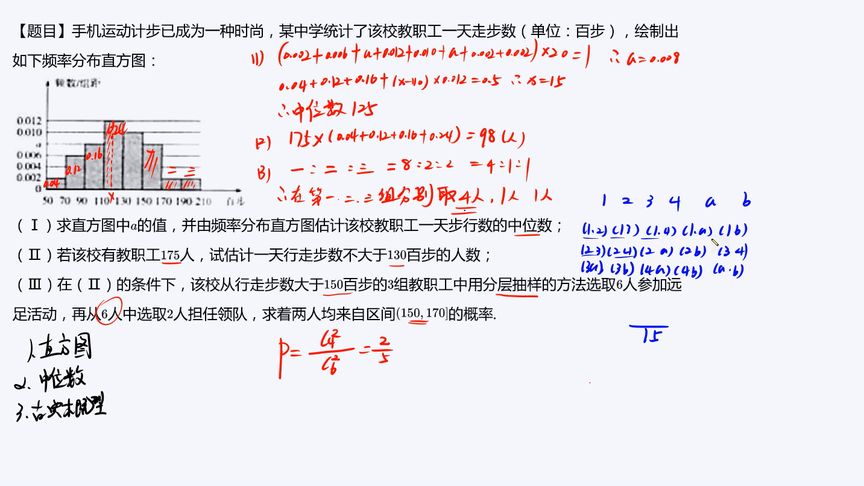 【题目】手机运动计步已成为一种时尚，某中学统计了该校教职工一天走步数（单位：百步），绘制出
如下频率分布直方图：
(1) (0.002+0.006+a+0.012+0.010+a+0.002+0.002)×20=1 ∴a=0.008
0.04+0.12+0.16+(x-110)×0.012=0.5 ∴x=15
∴中位数125
(2) 175×(0.04+0.12+0.16+0.24)=98(人)
(3) 一:二:三=8:2:2=4:1:1
∴在第一.二.三组分别取4人,1人 1人
频率/组距
0.012
0.010
a
0.006
0.004
0.002
0
0.04 0.12 0.16 0.24 一 二 三
x
50 70 90 110 130 150 170 190 210 百步
1 2 3 4 a b
(1.2) (13) (1.4) (1.a) (1b)
(23) (24) (2a) (2b) (34)
(3a) (3b) (4a) (4b) (a.b)
15
（Ⅰ）求直方图中a的值，并由频率分布直方图估计该校教职工一天步行数的中位数；
（Ⅱ）若该校有教职工175人，试估计一天行走步数不大于130百步的人数；
（Ⅲ）在（Ⅱ）的条件下，该校从行走步数大于150百步的3组教职工中用分层抽样的方法选取6人参加远
足活动，再从6人中选取2人担任领队，求着两人均来自区间(150, 170]的概率.
P=C₄²/C₆²=2/5
1.直方图
2.中位数
3.古典概型